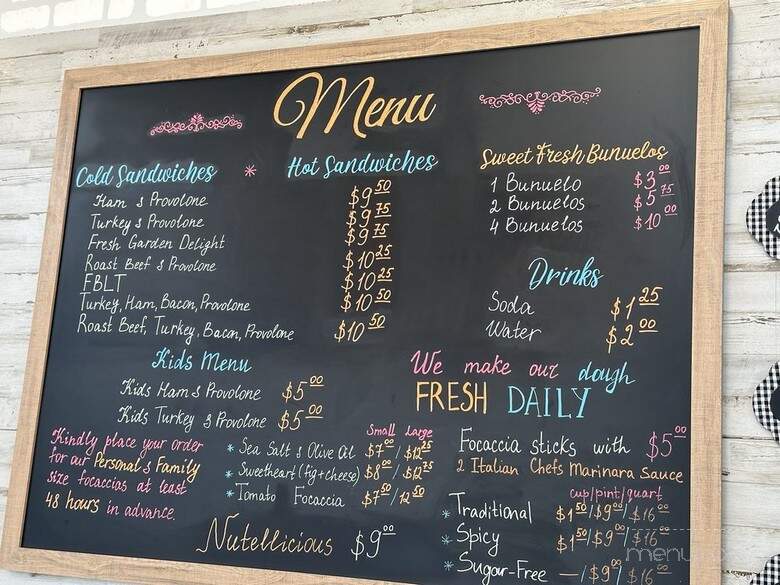 Menu
Cold Sandwiches * Hot Sandwiches
Ham & Provolone $9.50
Turkey & Provolone $9.75
Fresh Garden Delight $9.75
Roast Beef & Provolone $10.25
FBLT $10.25
Turkey, Ham, Bacon, Provolone $10.50
Roast Beef, Turkey, Bacon, Provolone $10.50
Kids Menu
Kids Ham & Provolone $5.00
Kids Turkey & Provolone $5.00
Kindly place your order
for our Personal & Family
size focaccias at least
48 hours in advance.
Small Large
* Sea Salt & Olive Oil $7.00/$12.25
* Sweetheart (fig+cheese) $8.00/$12.75
* Tomato Focaccia $7.50/12.50
Nutellicious $9.00
Sweet Fresh Bunuelos
1 Bunuelo $3.00
2 Bunuelos $5.75
4 Bunuelos $10.00
Drinks
Soda $1.25
Water $2.00
We make our dough
FRESH DAILY
Focaccia sticks with $5.00
2 Italian Chefs Marinara Sauce
cup/pint/quart
* Traditional $1.50/$9.00/$16.00
* Spicy $1.50/$9.00/$16.00
* Sugar-Free —/$9.00/$16.00